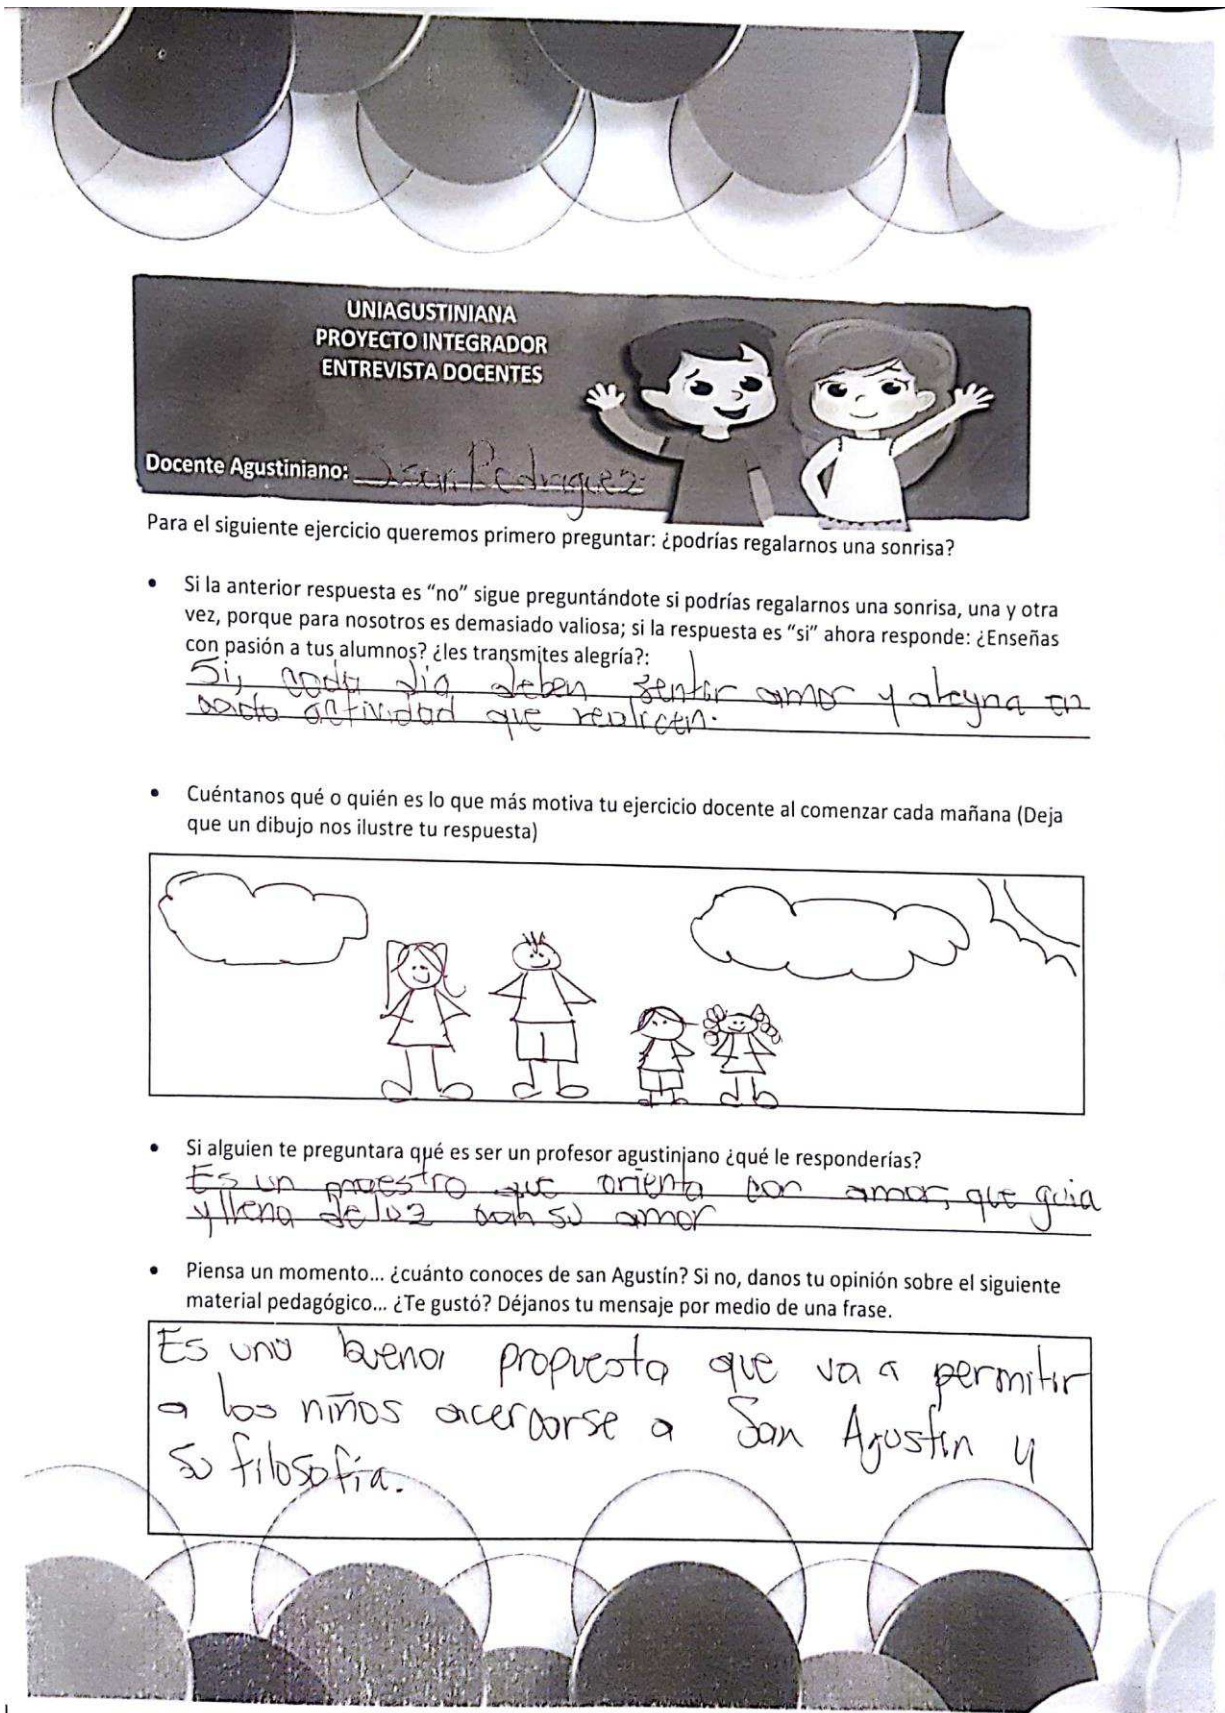 UNIAGUSTINIANA
PROYECTO INTEGRADOR
ENTREVISTA DOCENTES
Docente Agustiniano:
Para el siguiente ejercicio queremos primero preguntar: ¿podrías regalarnos una sonrisa?
• Si la anterior respuesta es “no” sigue preguntándote si podrías regalarnos una sonrisa, una y otra
vez, porque para nosotros es demasiado valiosa; si la respuesta es “si” ahora responde: ¿Enseñas
con pasión a tus alumnos? ¿les transmites alegría?:
Si, cada dia deben sentir amor y en
cada actividad que realicen.
• Cuéntanos qué o quién es lo que más motiva tu ejercicio docente al comenzar cada mañana (Deja
que un dibujo nos ilustre tu respuesta)
• Si alguien te preguntara qué es ser un profesor agustiniano ¿qué le responderías?
Es un maestro que orienta con amor, que guia
y llena de luz con su amor
• Piensa un momento... ¿cuánto conoces de san Agustín? Si no, danos tu opinión sobre el siguiente
material pedagógico... ¿Te gustó? Déjanos tu mensaje por medio de una frase.
Es una buena propuesta que va a permitir
a los niños acercarse a San Agustin y
su filosofía.